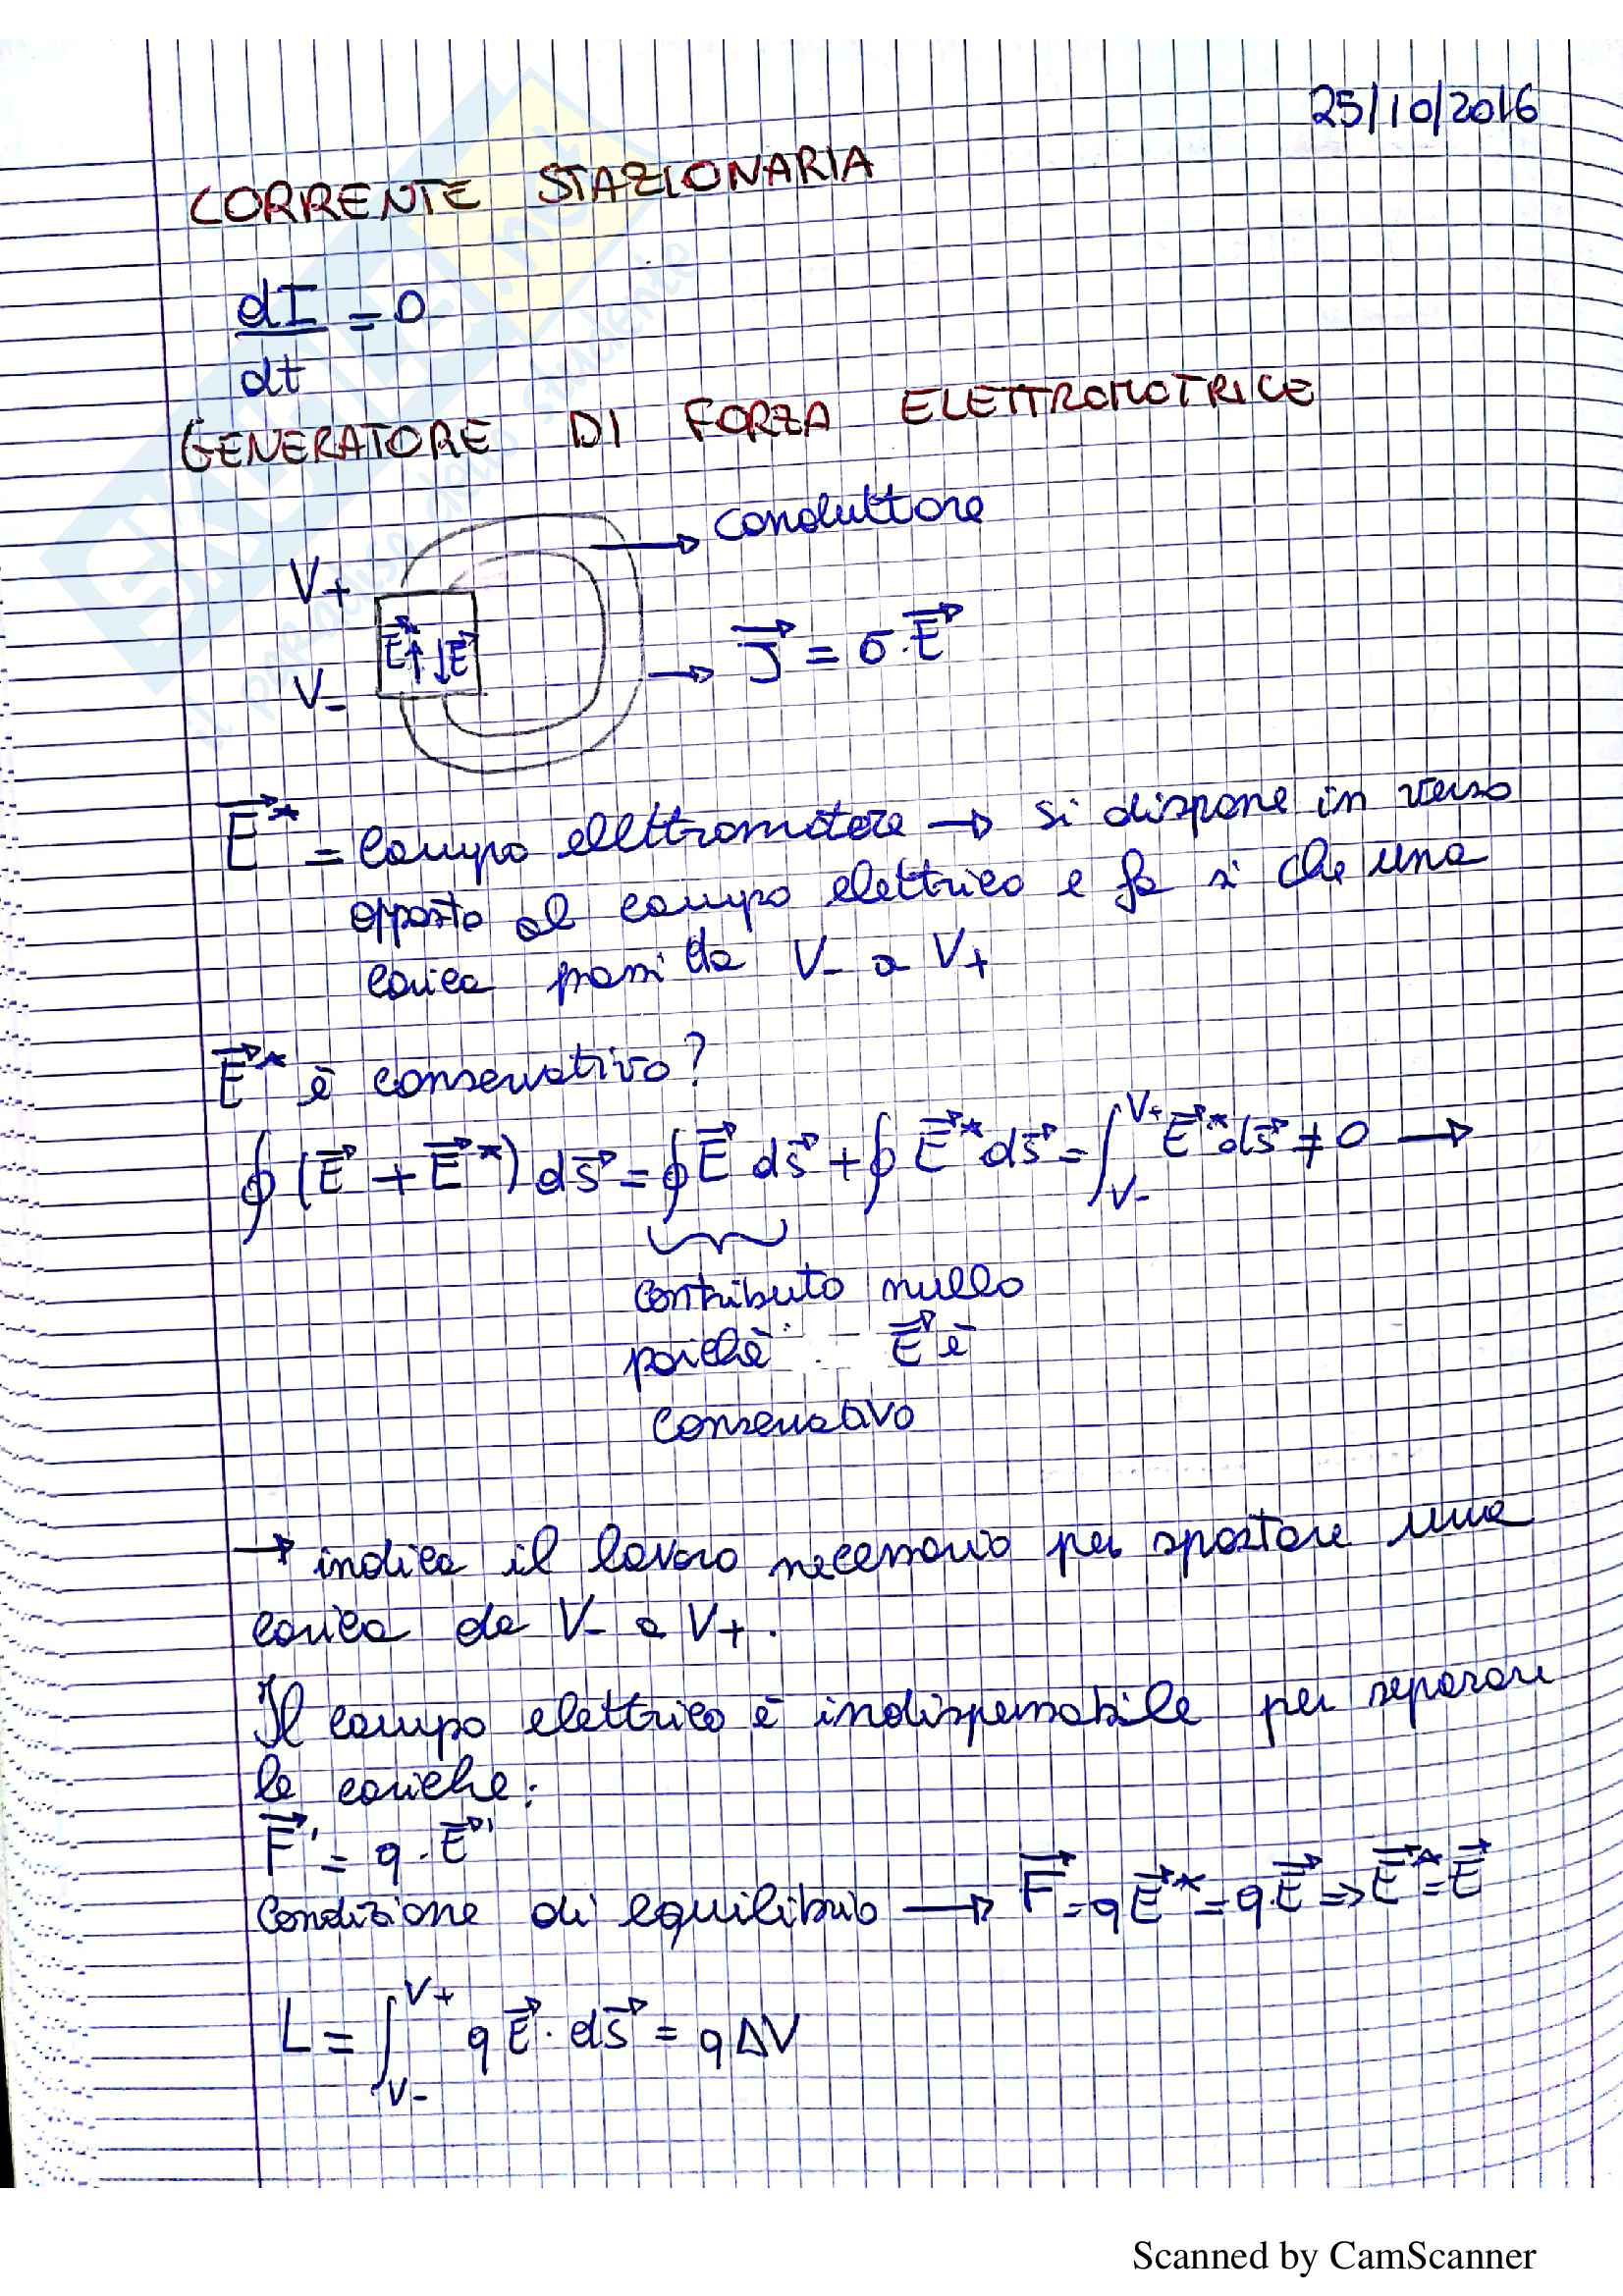 25/10/2016
CORRENTE STAZIONARIA
dI/dt = 0
GENERATORE DI FORZA ELETTROMOTRICE
→ conduttore
V+
E* ↑ ↓ E
→ J = σ · E
V-
E* = campo elettromotore → si dispone in verso
opposto al campo elettrico e fa sì che una
carica passi da V- a V+
E* è conservativo?
∮ (E + E*) ds = ∮ E ds + ∮ E* ds = ∫_{V-}^{V+} E* ds ≠ 0 →
contributo nullo
poichè E è
conservativo
→ indica il lavoro necessario per spostare una
carica da V- a V+.
Il campo elettrico è indispensabile per separare
le cariche:
F' = q · E'
Condizione di equilibrio → F = qE* = q·E ⇒ E* = E
L = ∫_{V-}^{V+} q E · ds = q ΔV
Scanned by CamScanner